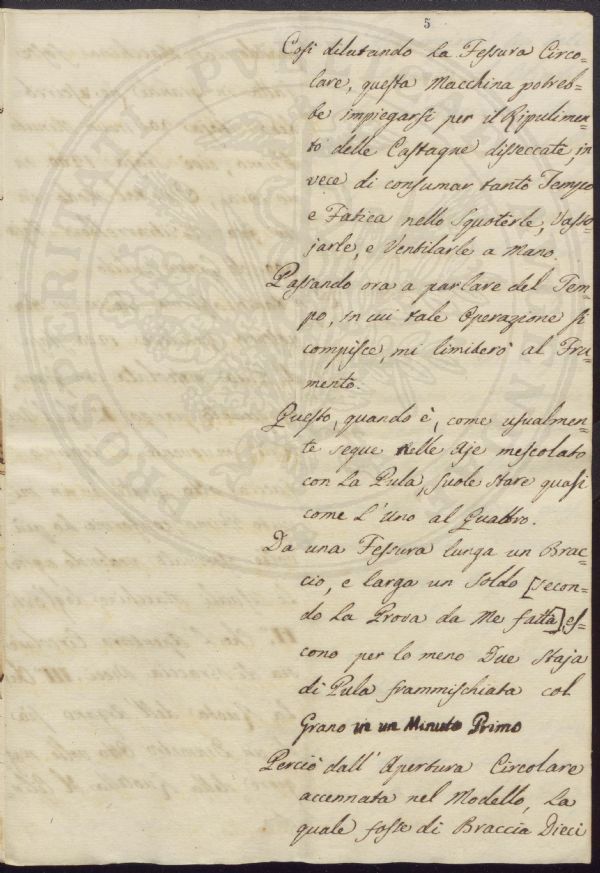 5
Così dilatando la Fessura Circo=
lare, questa Macchina potreb=
be impiegarsi per il Ripulimen=
to delle Castagne disseccate, in
vece di consumar tanto Tempo
e Fatica nello Squoterle, Vasso=
jarle, e Ventilarle a Mano.
Passando ora a parlare del Tem=
po, in cui tale Operazione si
compisce, mi limiterò al Fru=
mento.
Questo, quando è, come usualmen=
te segue nelle Aje mescolato
con la Pula, suole stare quasi
come l'Uno al Quattro.
Da una Fessura lunga un Brac=
cio, e larga un Soldo [secon=
do la Prova da Me fatta] es=
cono per lo meno Due Staja
di Pula frammischiata col
Grano in un Minuto Primo
Perciò dall'Apertura Circolare
accennata nel Modello, la
quale fosse di Braccia Dieci